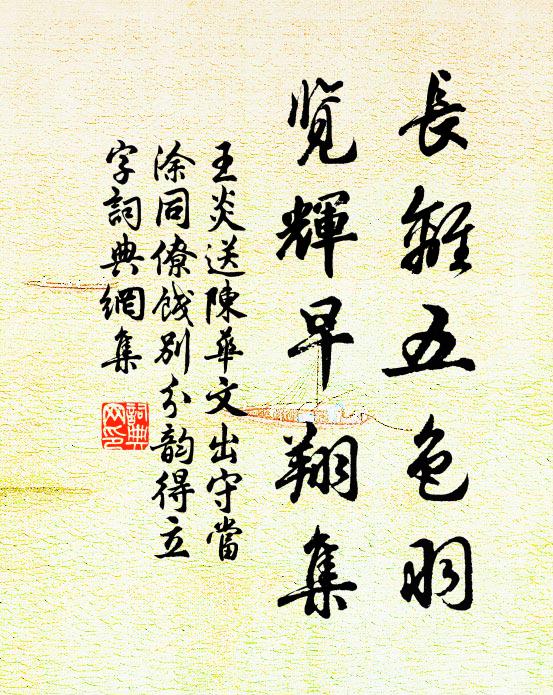 長離五色羽
覽輝早翔集
王炎送陳華文出守當
涂同僚餞別分韵得立
字詞典網集
詞典
网印